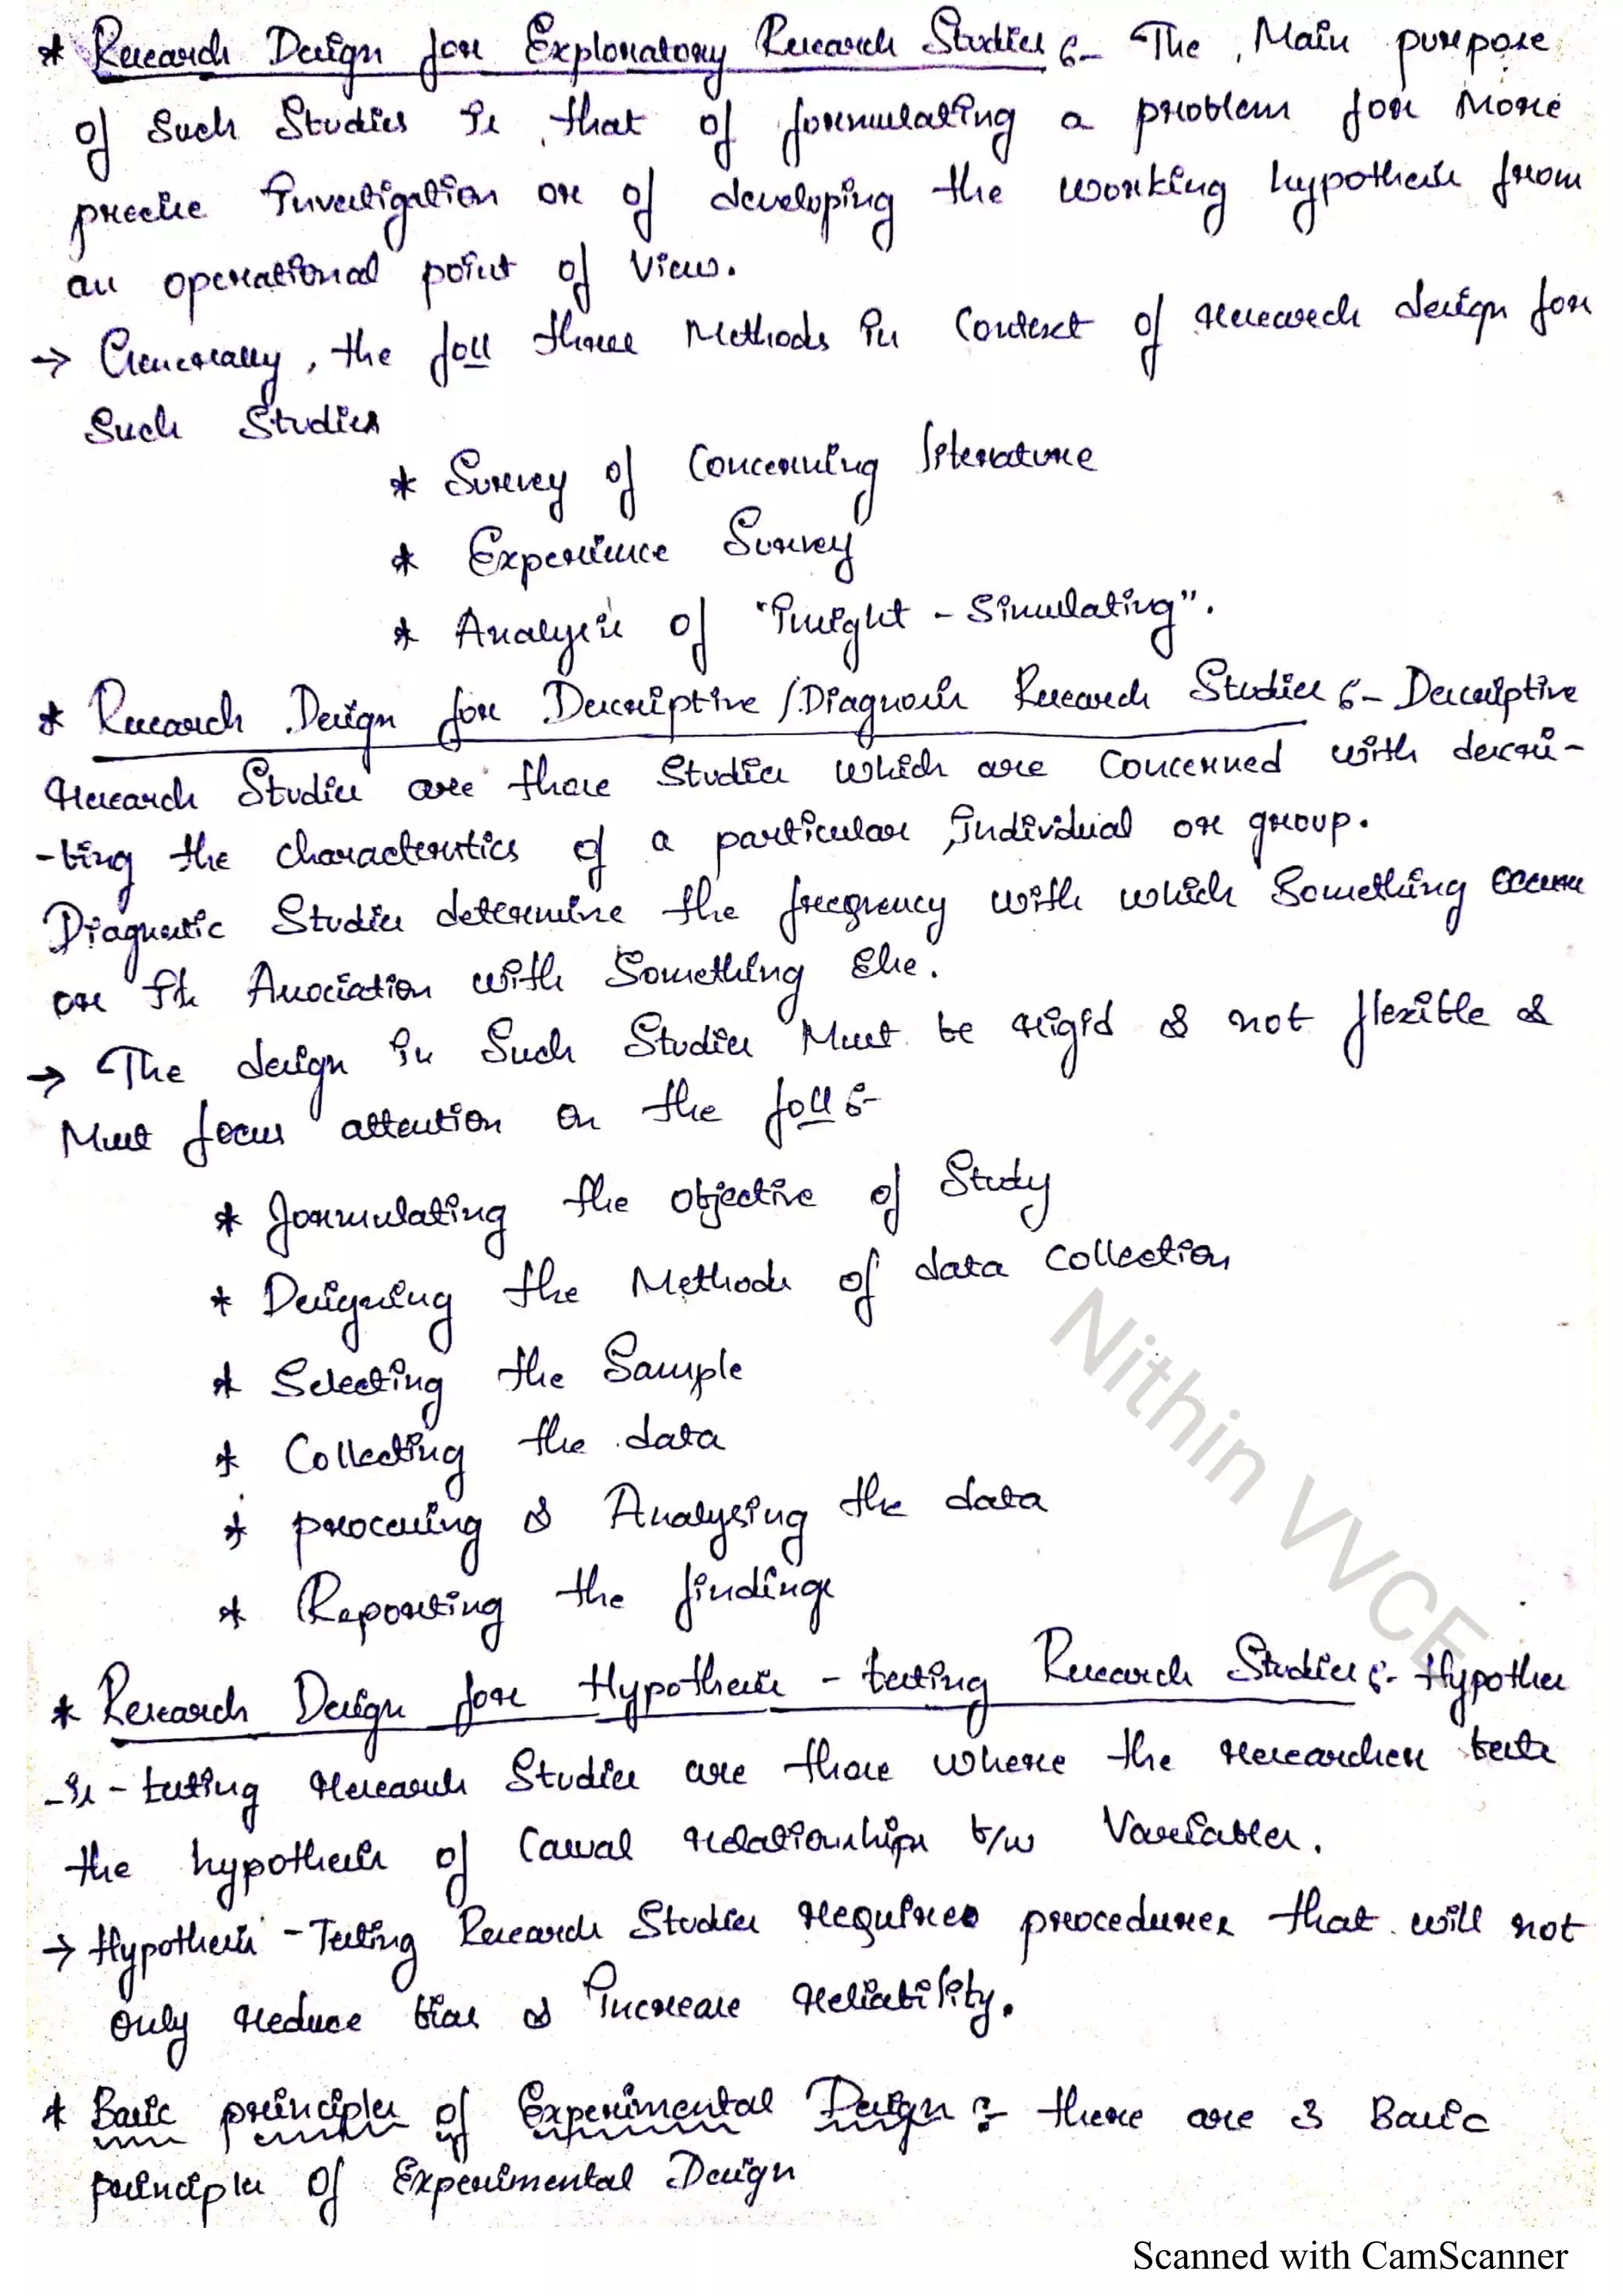 * Research Design for Exploratory Research Studies :- The Main purpose
of Such Studies is that of formulating a problem for More
precise Investigation or of developing the working hypothesis from
an operational point of View.
→ Generally, the foll three Methods in Context of research design for
Such Studies
* Survey of Concerning literature
* Experience Survey
* Analysis of "Insight - Simulating".
* Research Design for Descriptive / Diagnosis Research Studies :- Descriptive
research Studies are those Studies which are Concerned with descri-
-bing the characterstics of a particular Individual or group.
Diagnostic Studies determine the frequency with which Something occurs
or its Association with Something Else.
→ The design in Such Studies Must be rigid & not flexible &
Must focus attention on the foll :-
* formulating the objective of Study
* Designing the Methods of data Collection
* Selecting the Sample
* Collecting the data
* processing & Analysing the data
* Reporting the findings
* Research Design for Hypothesis - testing Research Studies :- Hypothes
-is - testing research Studies are those where the researcher tests
the hypothesis of Causal relationships b/w Variables.
→ Hypothesis - Testing Research Studies requires procedures that will not
only reduce bias & Increase reliability.
* Basic principles of Experimental Design :- there are 3 Basic
principles of Experimental Design
Nithin VVCE
Scanned with CamScanner